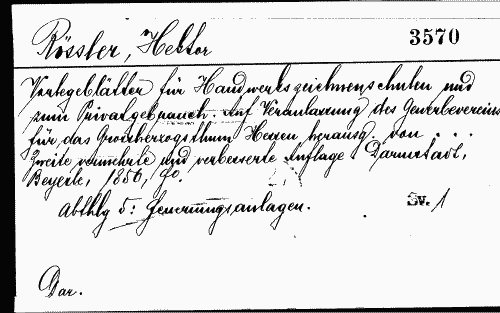 Rössler, Hektor 3570
Vorlegeblätter für Handwerkszeichnenschulen und
zum Privatgebrauch. Auf Veranlassung des Gewerbevereins
für das Grossherzogsthum Hessen herausg. von . . .
Zweite vermehrte und verbesserte Auflage. Darmstadt,
Beyerle, 1856, fo.
Abthlg 5: Feuerungsanlagen. Sv. 1
Dar.